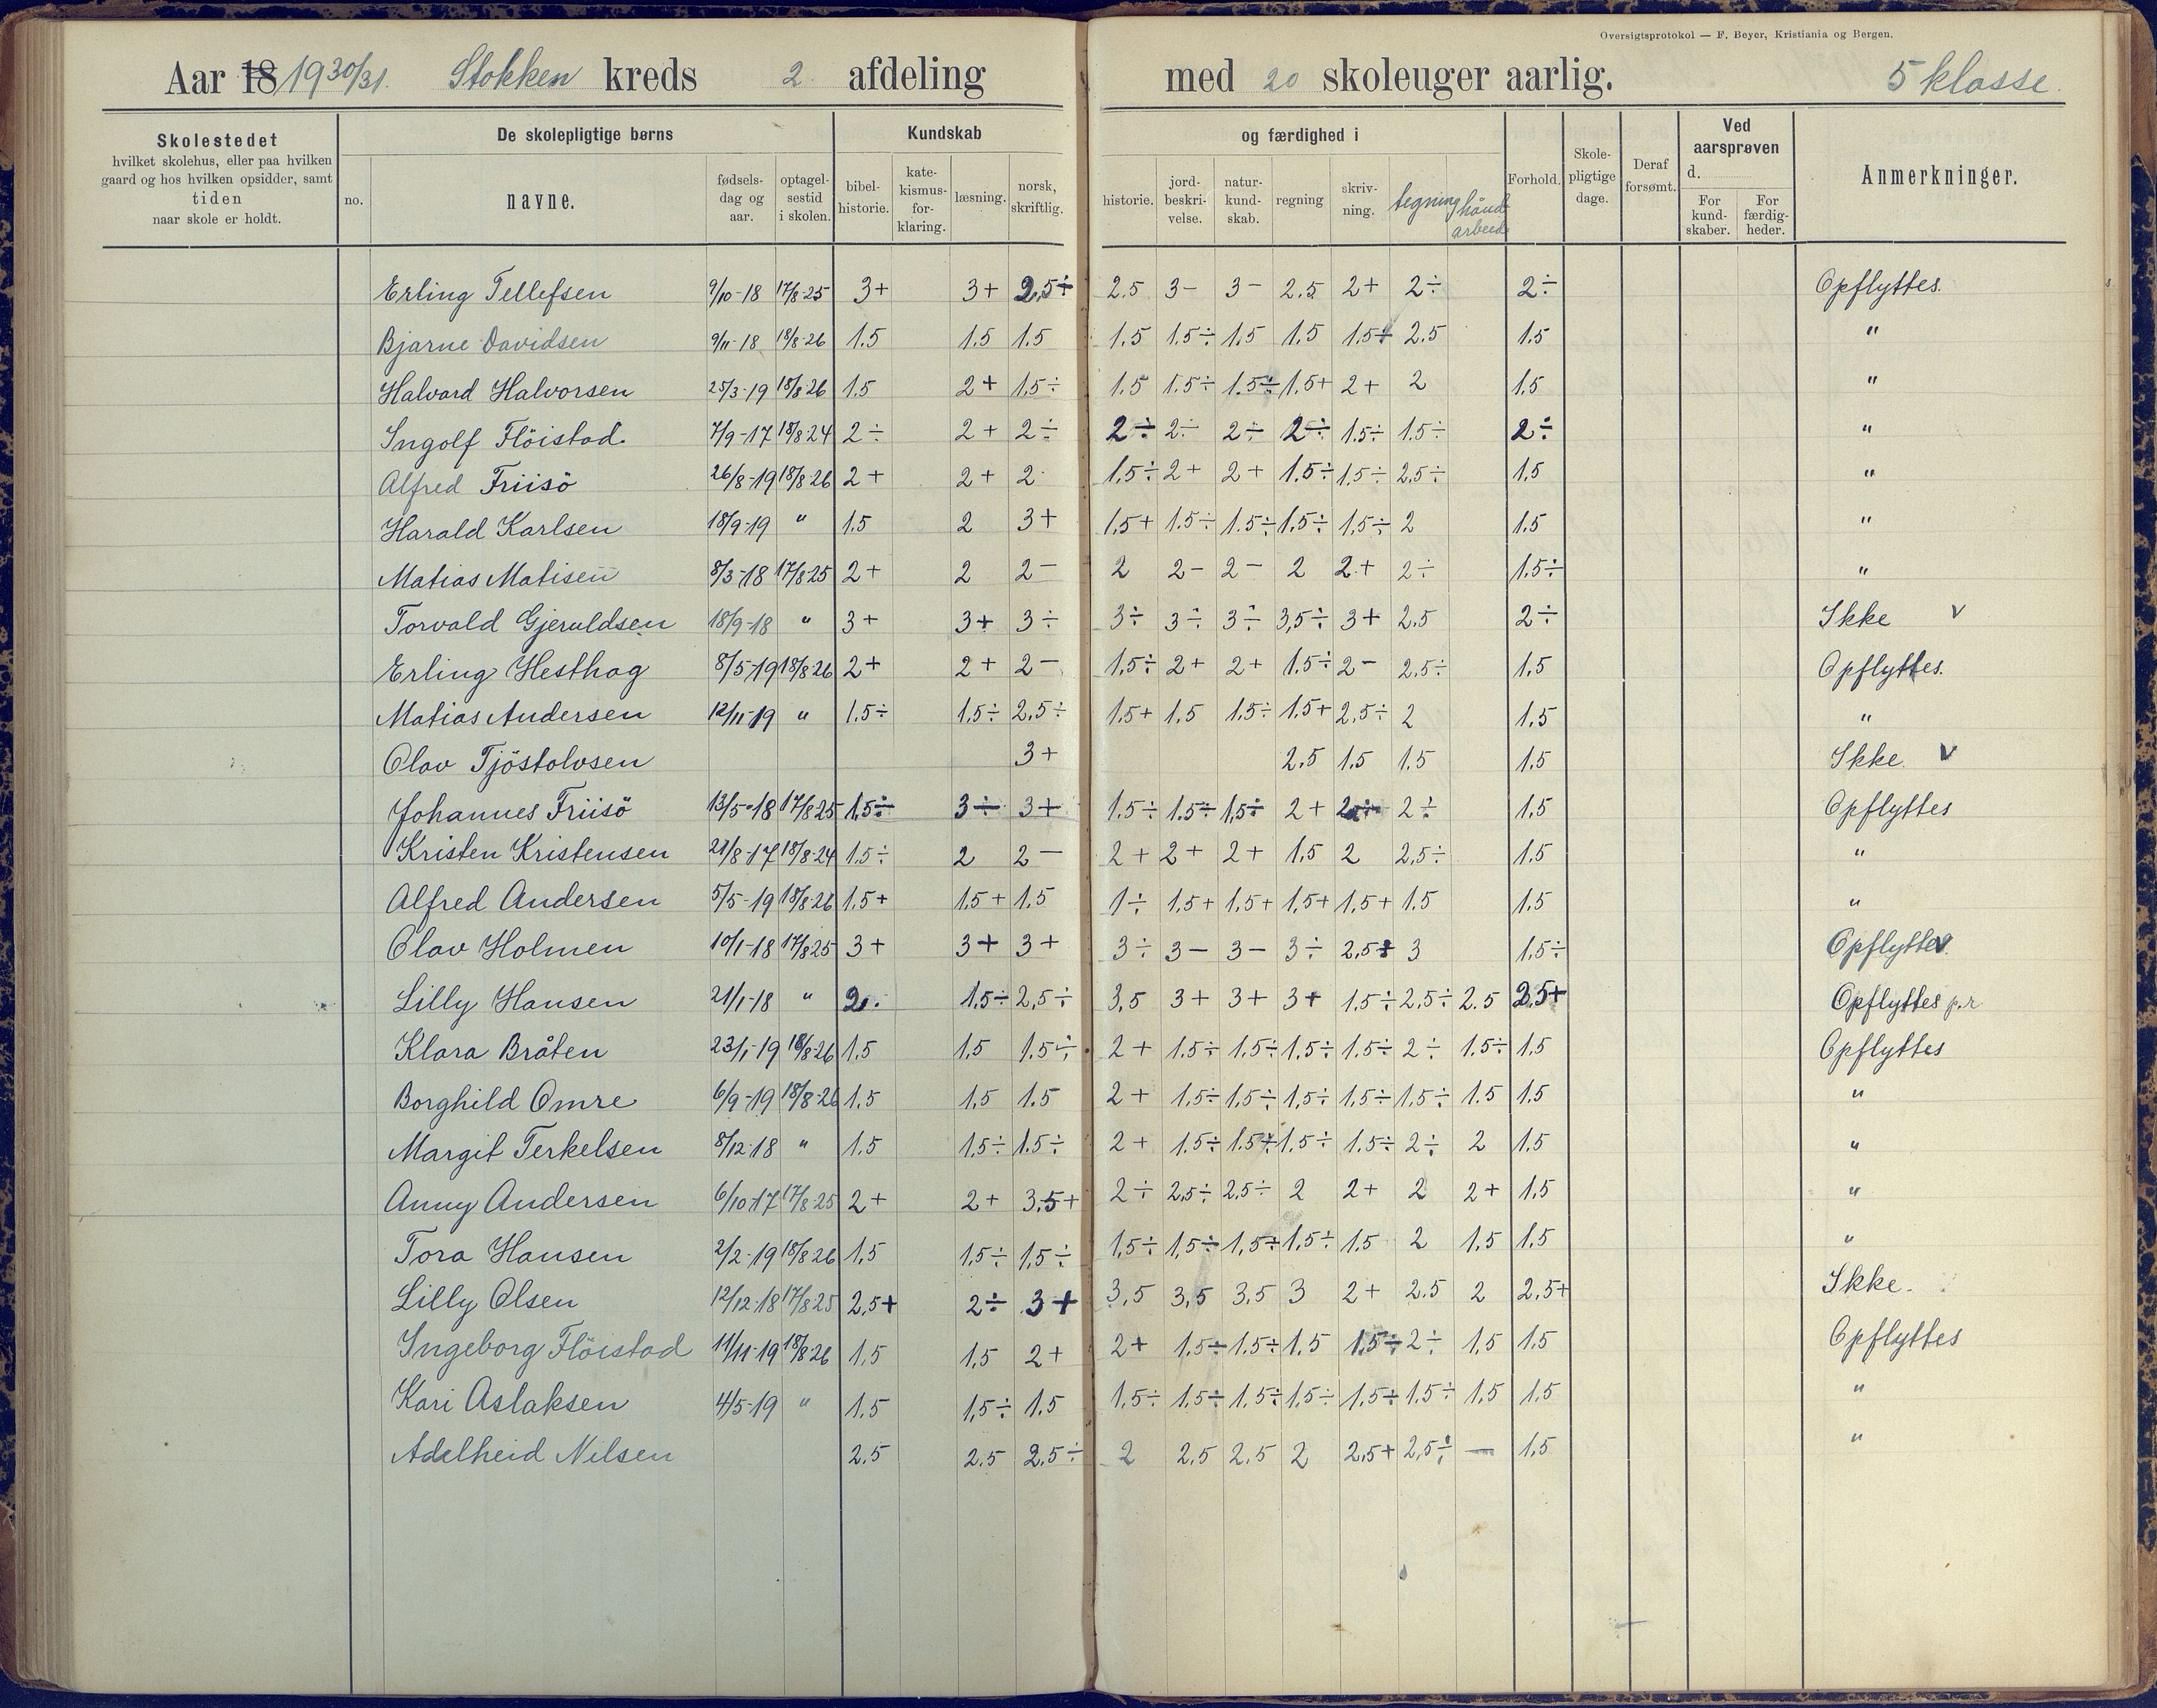 Oversigtsprotokol — F. Beyer, Kristiania og Bergen.
Aar 18 1930/31. Stokken kreds 2 afdeling med 20 skoleuger aarlig. 5 klasse.
Skolestedet hvilket skolehus, eller paa hvilken gaard og hos hvilken opsidder, samt tiden naar skole er holdt.
De skolepligtige børns
no. navne. fødsels-dag og aar. optagel-sestid i skolen.
Kundskab og færdighed i
bibel-historie. kate-kismus-for-klaring. læsning. norsk, skriftlig. historie. jord-beskri-velse. natur-kund-skab. regning skriv-ning. tegning håndarbeid
Forhold. Skole-pligtige dage. Deraf forsømt.
Ved aarsprøven d. For kund-skaber. For færdig-heder.
Anmerkninger.
Erling Tellefsen 9/10-18 17/8-25 3+ 3+ 2,5÷ 2.5 3- 3- 2.5 2+ 2÷ 2÷ Opflyttes.
Bjarne Davidsen 9/11-18 18/8-26 1.5 1.5 1.5 1.5 1.5÷ 1.5 1.5 1.5+ 2.5 1.5 "
Halvard Halvorsen 25/3-19 18/8-26 1.5 2+ 1.5÷ 1.5 1.5÷ 1.5÷ 1.5+ 2+ 2 1.5 "
Ingolf Flöistad. 7/9-17 18/8-24 2÷ 2+ 2÷ 2÷ 2÷ 2÷ 2÷ 1.5÷ 1.5÷ 2÷ "
Alfred Friisö 26/8-19 18/8-26 2+ 2+ 2 1,5÷ 2+ 2+ 1.5÷ 1.5÷ 2.5÷ 1.5 "
Harald Karlsen 18/9-19 " 1.5 2 3+ 1.5+ 1.5÷ 1.5÷ 1.5÷ 1.5÷ 2 1.5 "
Matias Matisen 8/3-18 17/8-25 2+ 2 2- 2 2- 2- 2 2+ 2÷ 1.5÷ "
Torvald Gjeruldsen 18/9-18 " 3+ 3+ 3÷ 3÷ 3÷ 3÷ 3,5÷ 3+ 2.5 2÷ Ikke v
Erling Hesthag 8/5-19 18/8-26 2+ 2+ 2- 1.5÷ 2+ 2+ 1.5÷ 2- 2.5÷ 1.5 Opflyttes.
Matias Andersen 12/11-19 " 1.5÷ 1.5÷ 2.5÷ 1.5+ 1.5 1.5÷ 1.5+ 2.5÷ 2 1.5 "
Olav Tjöstolvsen 3+ 2.5 1.5 1.5 1.5 Ikke. v
Johannes Friisö 13/5-18 17/8-25 1,5÷ 3÷ 3+ 1.5÷ 1.5÷ 1,5÷ 2+ 2÷ 1.5 Opflyttes
Kristen Kristensen 21/8-17 18/8-24 1.5÷ 2 2- 2+ 2+ 2+ 1.5 2 2,5÷ 1.5 "
Alfred Andersen 5/5-19 18/8-26 1.5+ 1.5+ 1.5 1÷ 1.5+ 1.5+ 1.5+ 1.5+ 1.5 1.5 "
Olav Holmen 10/1-18 17/8-25 3+ 3+ 3+ 3÷ 3- 3- 3÷ 2,5+ 3 1.5÷ Opflyttes
Lilly Hansen 21/1-18 " 2 1,5÷ 2,5÷ 3,5 3+ 3+ 3+ 1.5÷ 2.5÷ 2.5 2,5+ Opflyttes p.r
Klara Bråten 23/1-19 18/8-26 1.5 1,5 1.5÷ 2+ 1.5÷ 1.5÷ 1,5÷ 1.5÷ 2÷ 1.5÷ 1.5 Opflyttes
Borghild Omre 6/9-19 18/8-26 1.5 1,5 1.5 2+ 1.5÷ 1.5÷ 1,5÷ 1.5÷ 1.5÷ 1.5 1.5 "
Margit Terkelsen 8/12-18 " 1.5 1.5÷ 1.5÷ 2+ 1.5÷ 1.5÷ 1.5÷ 1.5÷ 2÷ 2 1.5 "
Anny Andersen 6/10-17 17/8-25 2+ 2+ 3.5+ 2÷ 2,5÷ 2.5÷ 2 2+ 2 2+ 1.5 "
Tora Hansen 2/2-19 18/8-26 1.5 1,5÷ 1,5÷ 1,5÷ 1,5÷ 1,5÷ 1,5÷ 1.5 2 1.5 1.5 "
Lilly Olsen 12/12-18 17/8-25 2,5+ 2÷ 3+ 3,5 3,5 3,5 3 2+ 2.5 2 2,5+ Ikke.
Ingeborg Flöistad 11/11-19 18/8-26 1,5 1,5 2+ 2+ 1.5÷ 1.5÷ 1.5 1,5÷ 2÷ 1,5 1.5 Opflyttes
Kari Aslaksen 4/5-19 " 1.5 1,5÷ 1.5 1,5÷ 1,5÷ 1.5÷ 1,5÷ 1.5÷ 1.5÷ 1.5 1.5 "
Adelheid Nilsen 2.5 2.5 2.5÷ 2 2.5 2.5 2 2.5+ 2,5÷ — 1.5 "